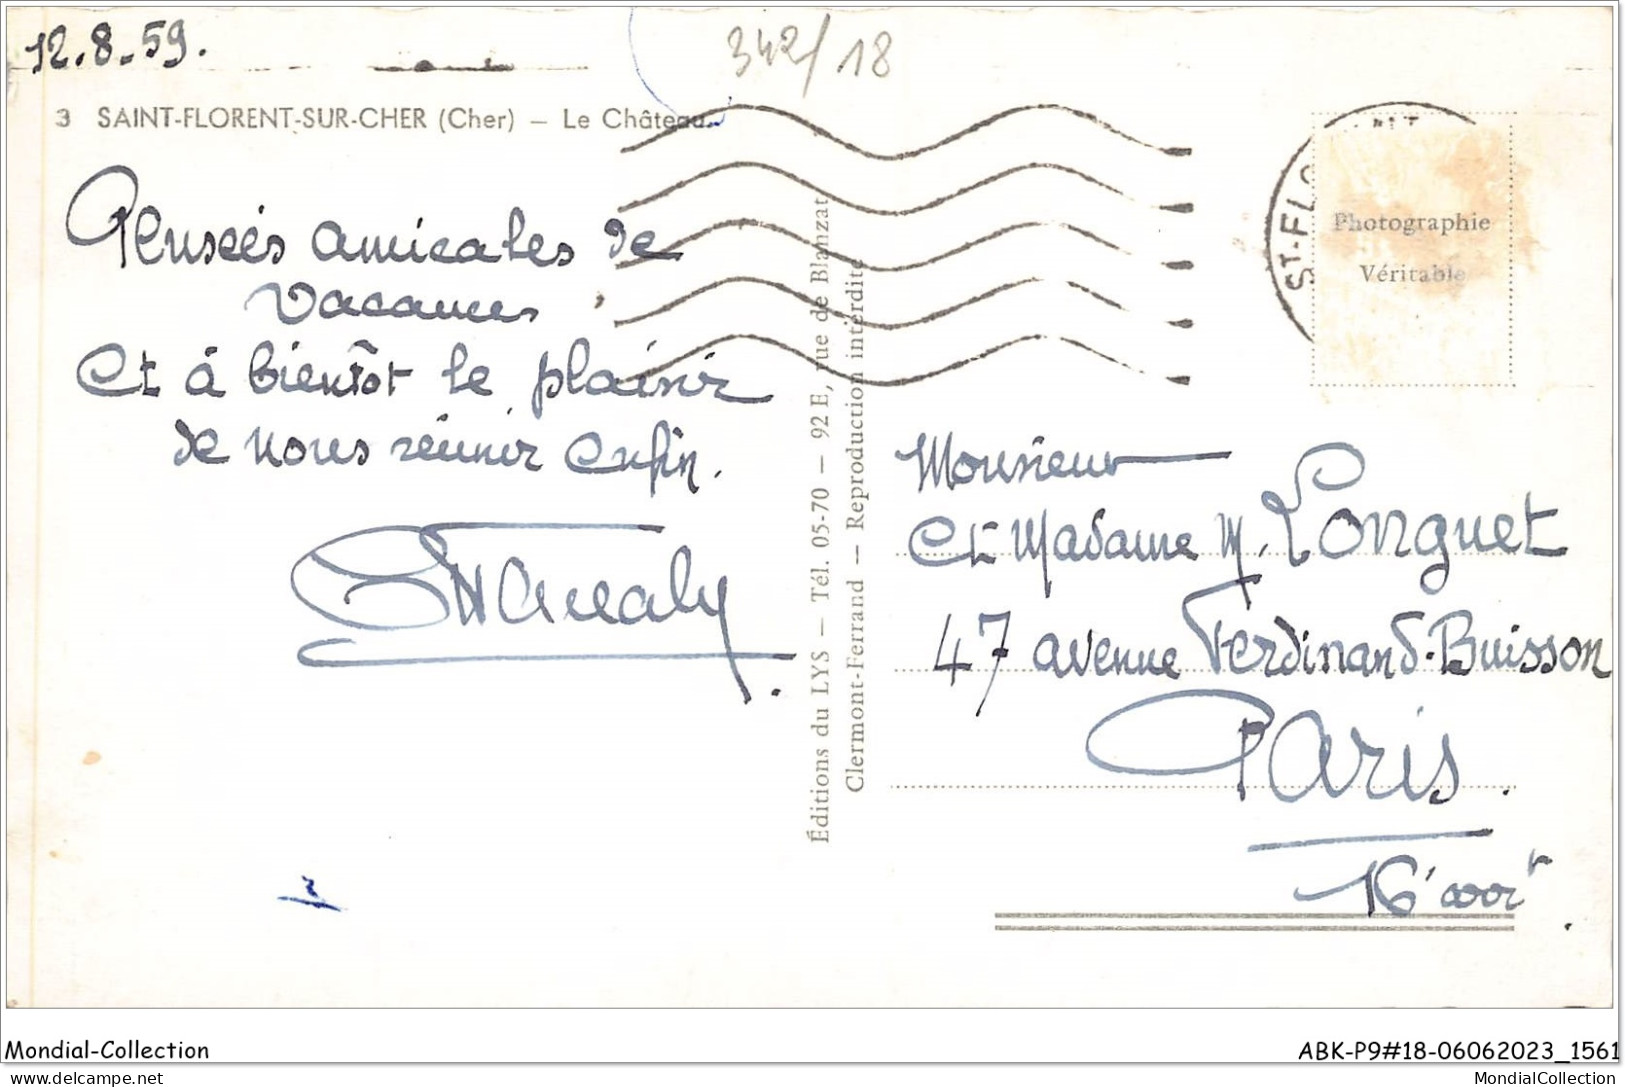 12.8.59.
342/18
3 SAINT-FLORENT-SUR-CHER (Cher) – Le Château.
Pensées amicales de
vacances,
Et à bientôt le plaisir
de nous réunir enfin.
Éditions du LYS – Tél. 05-70 – 92 E, rue de Blanzat
Clermont-Ferrand – Reproduction interdite
ST-FLO
Photographie
Véritable
Monsieur
Et Madame M. Longuet
47 avenue Ferdinand-Buisson
Paris.
16
Mondial-Collection
ABK-P9#18-06062023_1561
delcampe.net
MondialCollection